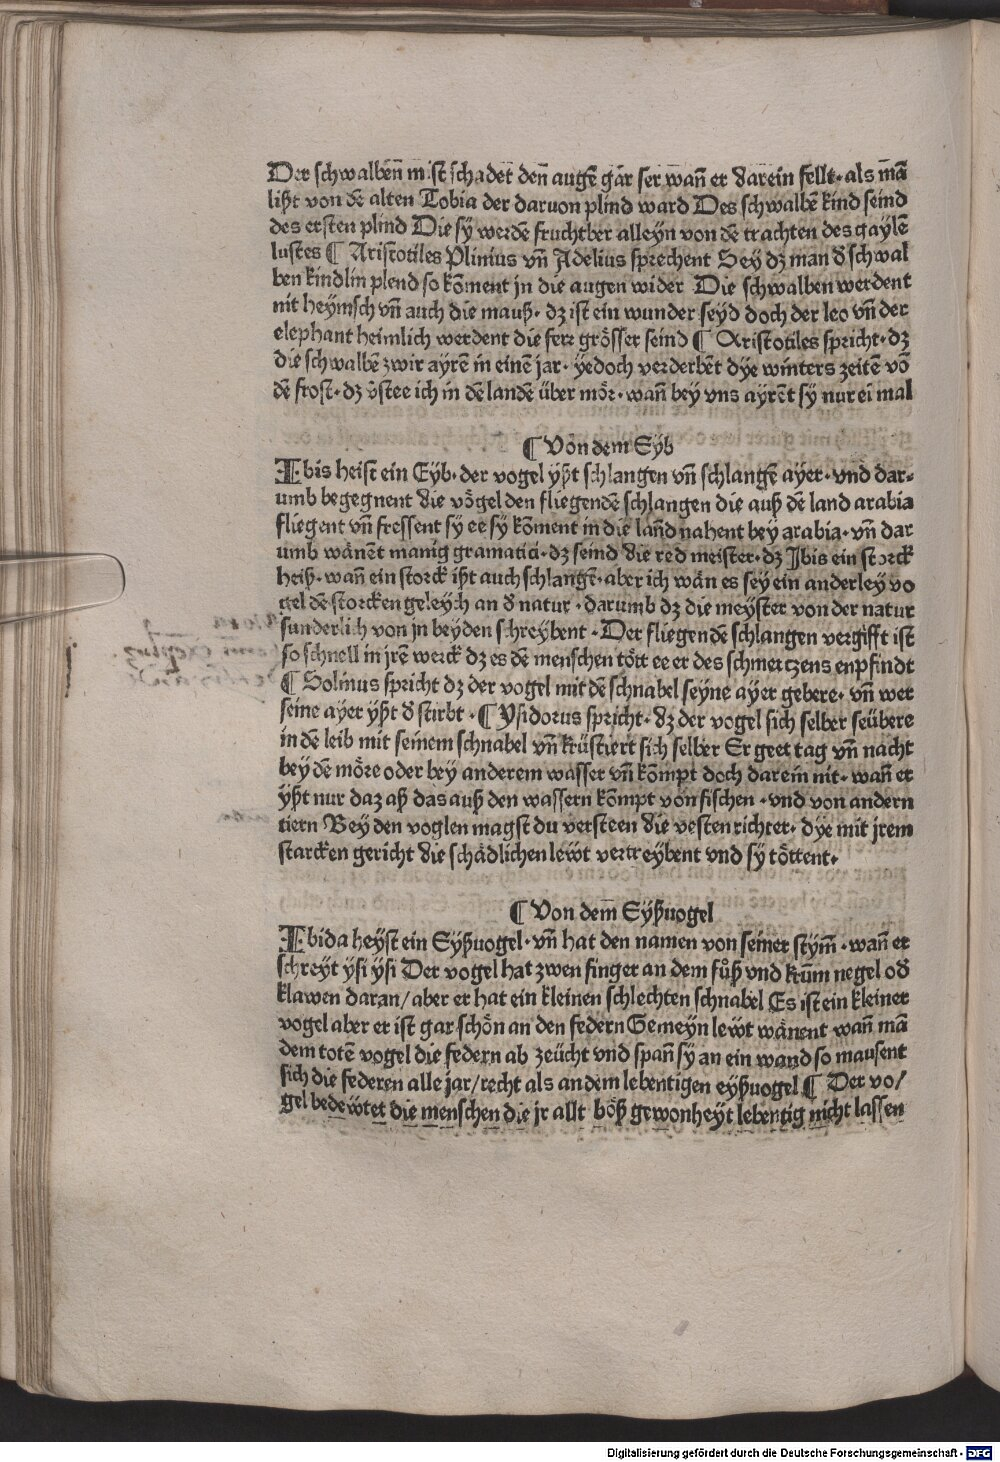 Der schwalbeñ mist schadet deñ augẽ gar ser wañ er darein fellt· als mã
lißt von dẽ alten Tobia der daruon plind ward Des schwalbẽ kind seind
des ersten plind Die sy werdẽ fruchtber alleyn von dẽ trachten des gaylẽ
lustes ¶ Aristotiles Plinius vñ Adelius sprechent Sey dz man đ schwal
ben kindlin plend so kõment jn die augen wider Die schwalben werdent
nit heymsch vñ auch die mauß· dz ist ein wunder seyd doch der leo vñ der
elephant heimlich werdent die ferr grösser seind ¶ Aristotiles spricht· dz
die schwalbẽ zwir ayrẽ in einẽ jar· yedoch verderbẽt dye winters zeitẽ võ
dẽ frost· dz v̾stee ich in dẽ landẽ über mör· wañ bey vns ayrẽt sy nur eĩ mal
¶ Von dem Eyb
Ibis heist ein Eyb· der vogel yßt schlangen vñ schlangẽ ayer· vnd dar⸗
umb begegnent die vögel den fliegendẽ schlangen die auß dẽ land arabia
fliegent vñ fressent sy ee sy kõment in die lañd nahent bey arabia· vñ dar
umb wänẽt manig gramatici· dz seind die red meister· dz Ibis ein storck
heiß· wañ ein storck ißt auch schlangẽ· aber ich wän es sey ein anderley vo
gel dẽ storcken geleych an đ natur· darumb dz die meyster von der natur
sunderlich von jn beyden schreybent· Der fliegendẽ schlangen vergifft ist
so schnell in jrẽ werck dz es dẽ menschen tött ee er des schmertzens enpfindt
¶ Solinus spricht dz der vogel mit dẽ schnabel seyne ayer gebere· vñ wer
seine ayer yßt đ stirbt· ¶ Ysidorus spricht· dz der vogel sich selber seübere
in dẽ leib mit seinem schnabel vñ krüstiert sich selber Er geet tag vñ nacht
bey dẽ möre oder bey anderem wasser vñ kõmpt doch darein nit· wañ er
yßt nur daz aß das auß den wassern kõmpt von fischen· vnd von andern
tiern Bey den voglen magst du versteen die vesten richter· dye mit jrem
starcken gericht die schädlichen lewt vertreybent vnd sy töttent·
¶ Von dem̃ Eyßuogel
Ibida heyst ein Eyßuogel· vñ hat den namen von seiner stym̃· wañ er
schreyt ysi ysi Der vogel hat zwen finger an dem fůß vnd krũm negel ođ
klawen daran/ aber er hat ein kleinen schlechten schnabel Es ist ein kleiner
vogel aber er ist gar schön an den federn Gemeyn lewt wänent wañ mã
dem totẽ vogel die federn ab zeücht vnd spañ sy an ein wand so mausent
sich die federen alle jar/ recht als an dem lebentigen eyßuogel ¶ Der vo/
gel bedewtet die menschen die jr allt böß gewonheyt lebentig nicht lassen
Digitalisierung gefördert durch die Deutsche Forschungsgemeinschaft - DFG